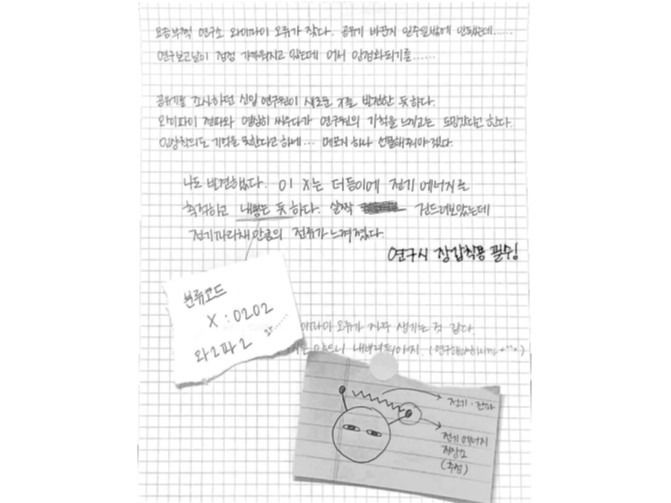 요즘부쩍 연구소 와이파이 오류가 잦다. 공유기 바꾼지 일주일밖에 안됐는데......
연구보고날이 점점 가까워지고 있는데 어서 안정화되기를......
공유기를 조사하던 신입 연구원이 새로운 X를 발견한 듯 하다.
와이파이 전파와 열심히 싸우다가 연구원의 기척을 느끼고는 도망갔다고 한다.
인상착의도 기억을 못한다고 하네... 메모지 하나 선물해줘야겠다.
나도 발견하였다. 이 X는 더듬이에 전기 에너지를
축적하고 내뿜는 듯 하다. 살짝 건드려보았는데
전기파리채만큼의 전류가 느껴졌다.
연구시 장갑착용 필수!
분류코드
X : 0202
와2파2
이파이 오류가 자주 생기는 것 같다.
내버려둬야지.
전기·전파
전기 에너지
저장소
(추정)